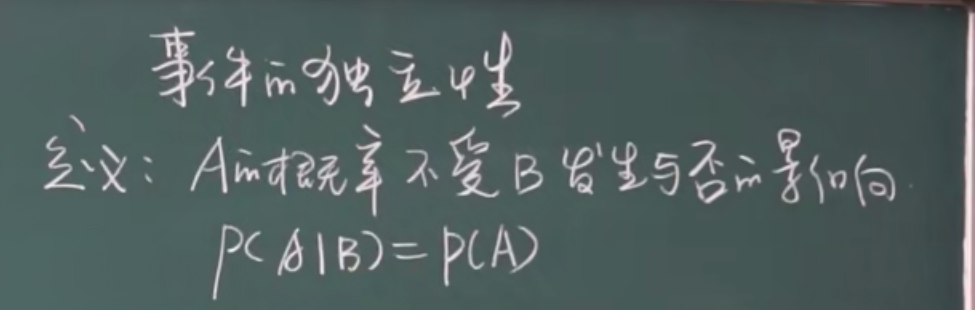 事件的独立性
定义：A的概率不受B发生与否的影响.
P(A|B)=P(A)